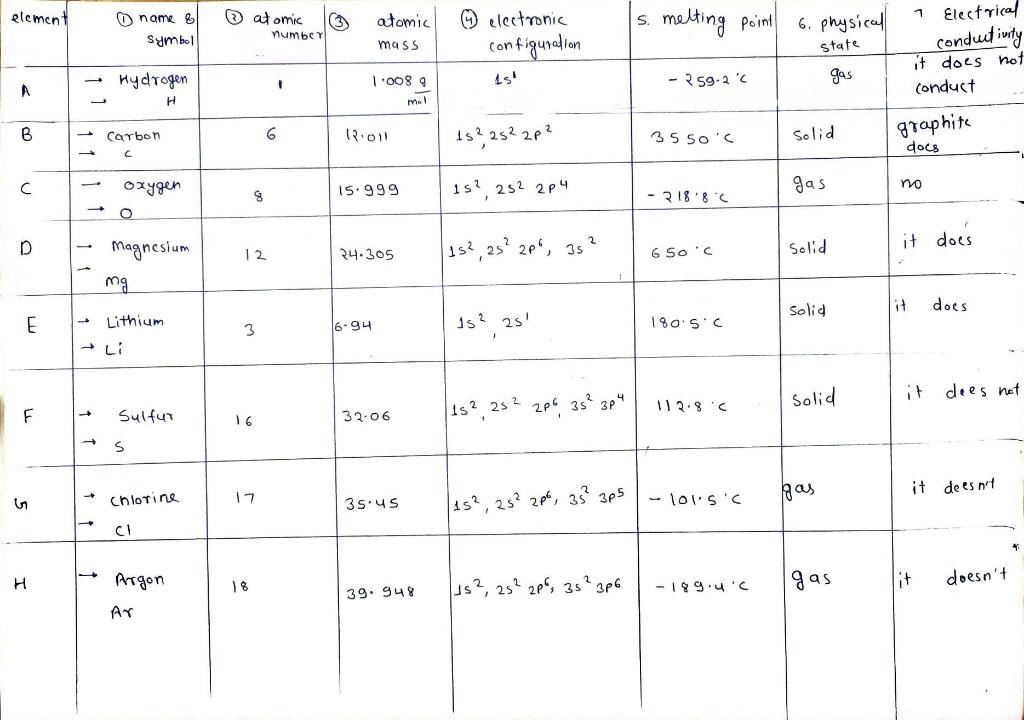 element ① name & ② atomic ③ atomic ④ electronic 5. melting point 6. physical 7 Electrical
symbol number mass configuration state conductivity
A → Hydrogen 1 1.008 g/mol 1s¹ -259.2°C gas it does not
→ H conduct
B → Carbon 6 12.011 1s², 2s² 2p² 3550°C solid graphite
→ C does
C → oxygen 8 15.999 1s², 2s² 2p4 -218.8°C gas no
→ O
D → Magnesium 12 24.305 1s², 2s² 2p⁶, 3s² 650°C solid it does
→ mg
E → Lithium 3 6.94 1s², 2s¹ 180.5°C solid it does
→ Li
F → Sulfur 16 32.06 1s², 2s² 2p⁶, 3s² 3p⁴ 112.8°C solid it does not
→ S
G → chlorine 17 35.45 1s², 2s² 2p⁶, 3s² 3p5 -101.5°C gas it doesn't
→ Cl
H → Argon 18 39.948 1s², 2s² 2p⁶, 3s² 3p6 -189.4°C gas it doesn't
Ar